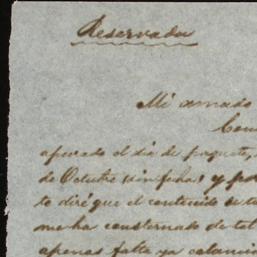 Reservada
Mi amado
apurado el dia de paquete,
de Octubre sin fecha; y por
te diré que el contenido de tu
me ha consternado de tal
apenas falta ya